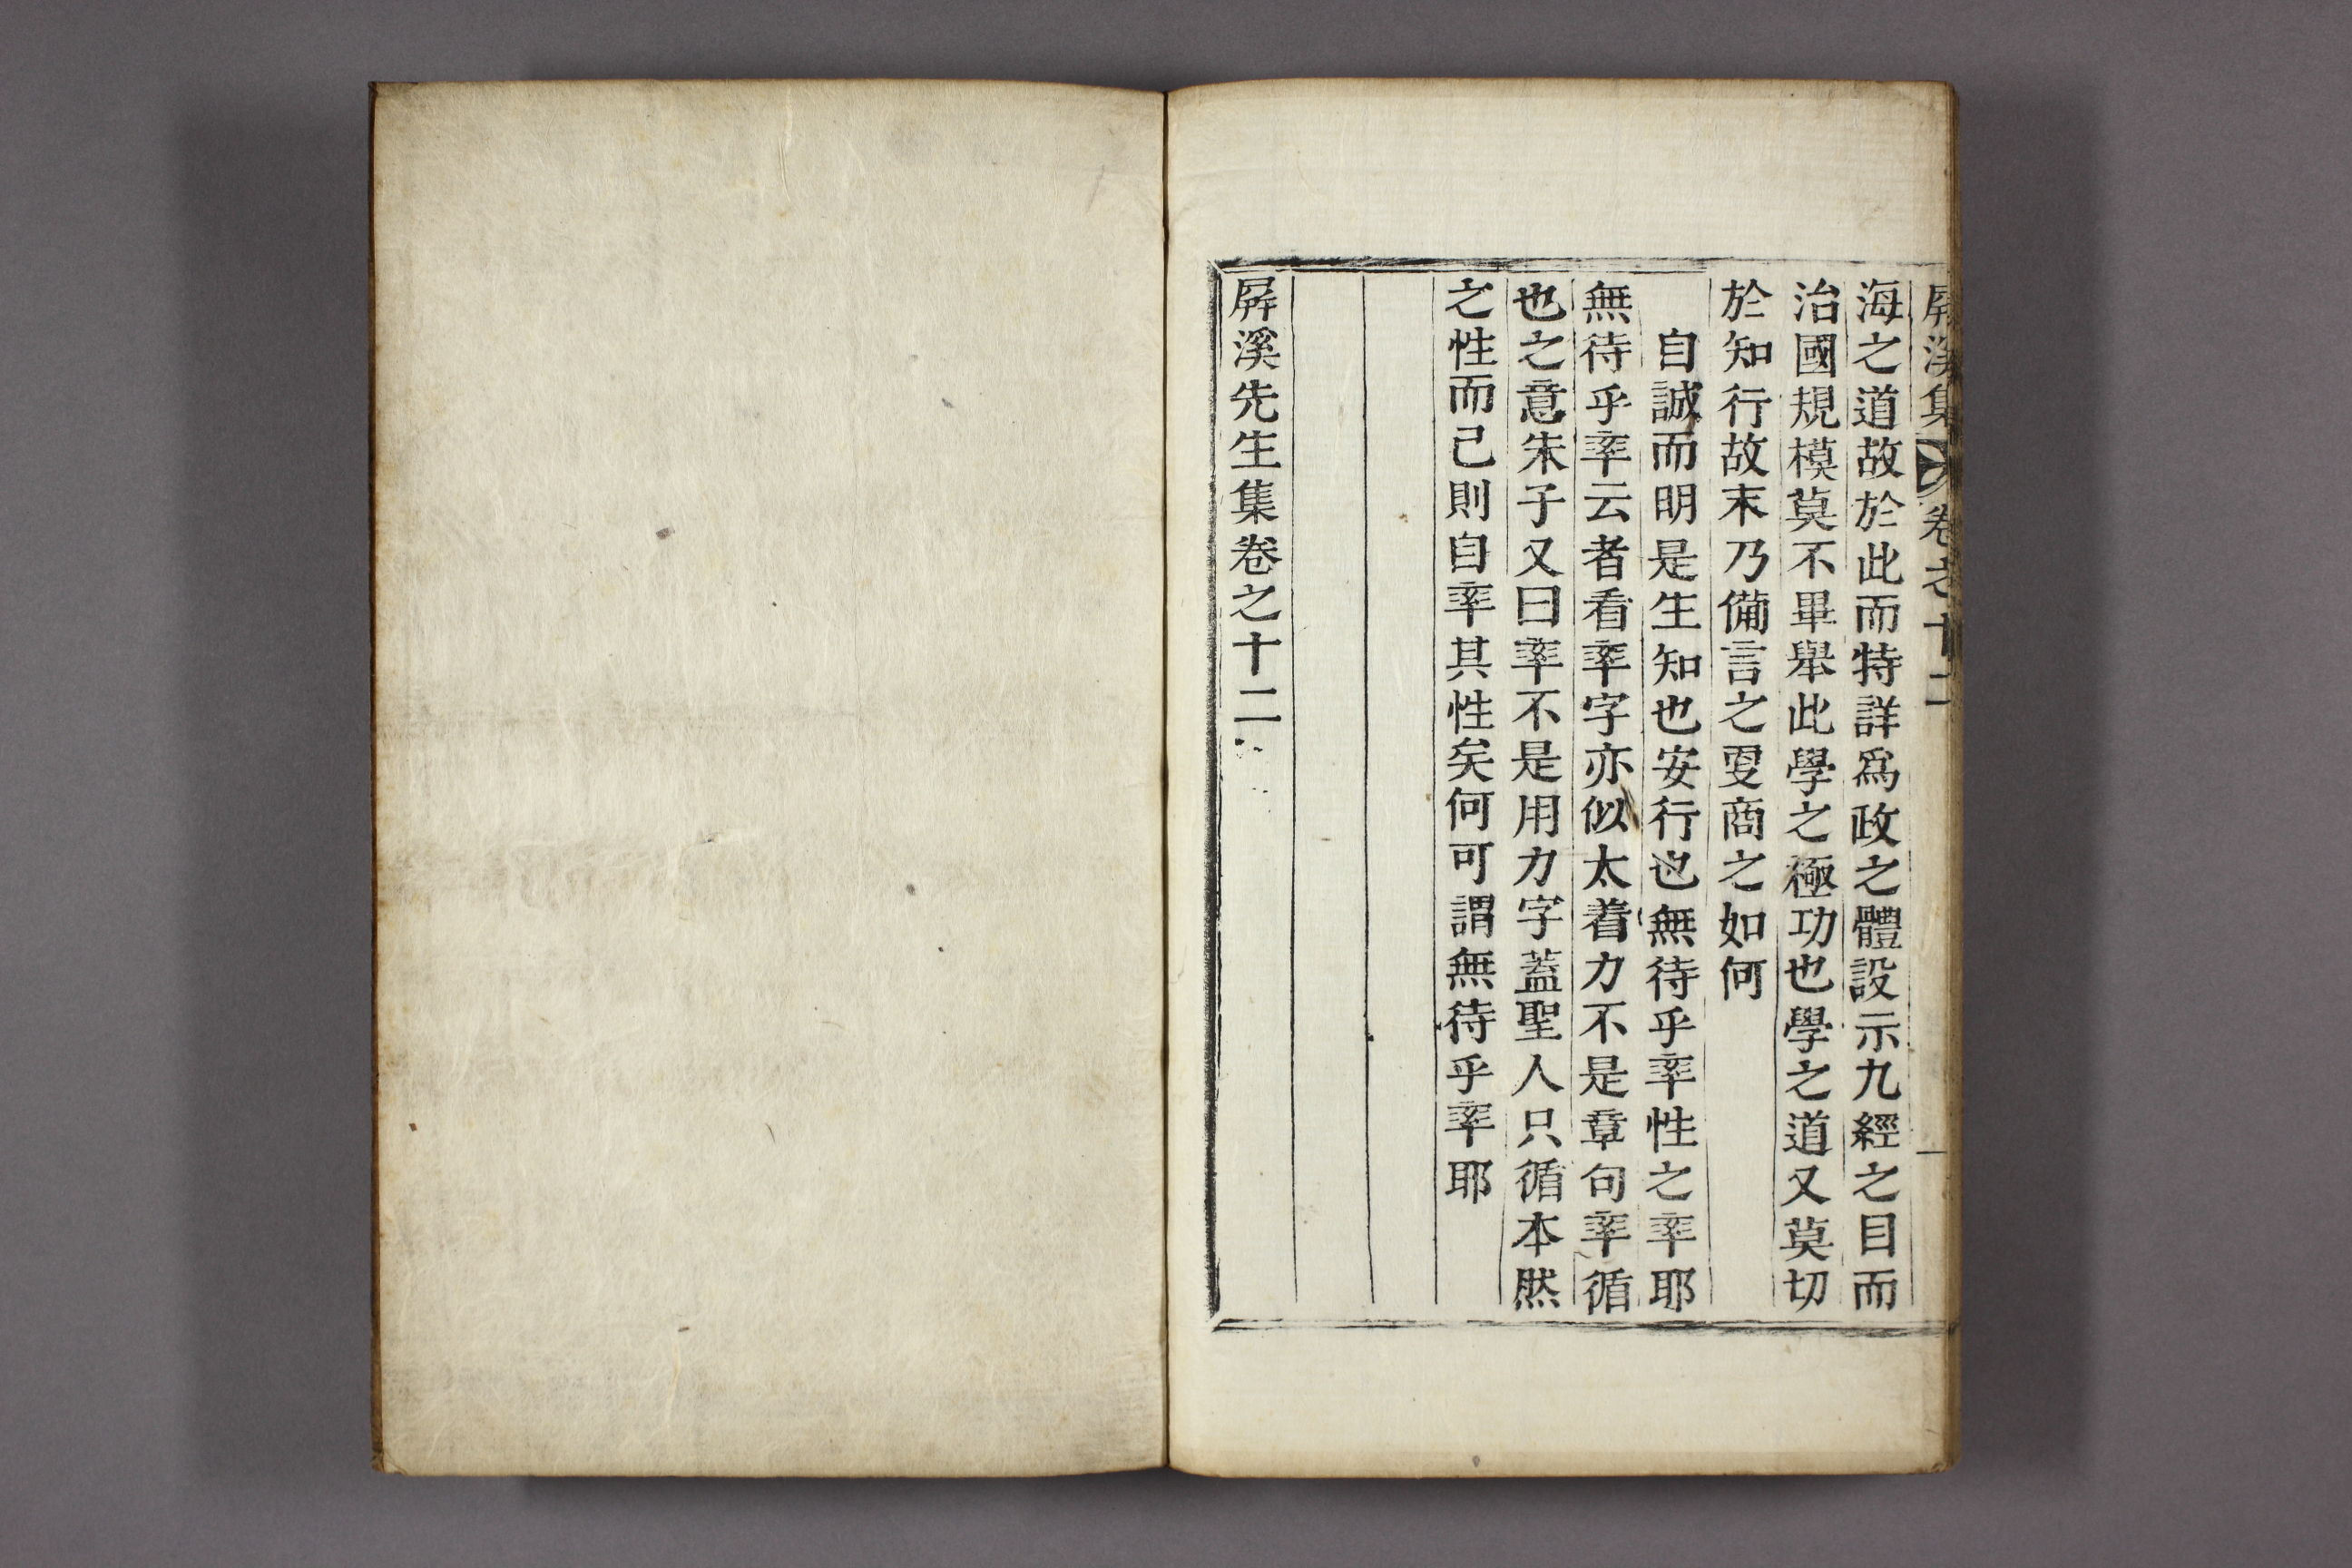 屛溪集 卷之十二
海之道故於此而特詳爲政之體設示九經之目而
治國規模莫不畢舉此學之極功也學之道又莫切
於知行故末乃備言之更商之如何
自誠而明是生知也安行也無待乎率性之率耶
無待乎率云者看率字亦似太着力不是章句率循
也之意朱子又曰率不是用力字蓋聖人只循本然
之性而已則自率其性矣何可謂無待乎率耶
屛溪先生集卷之十二